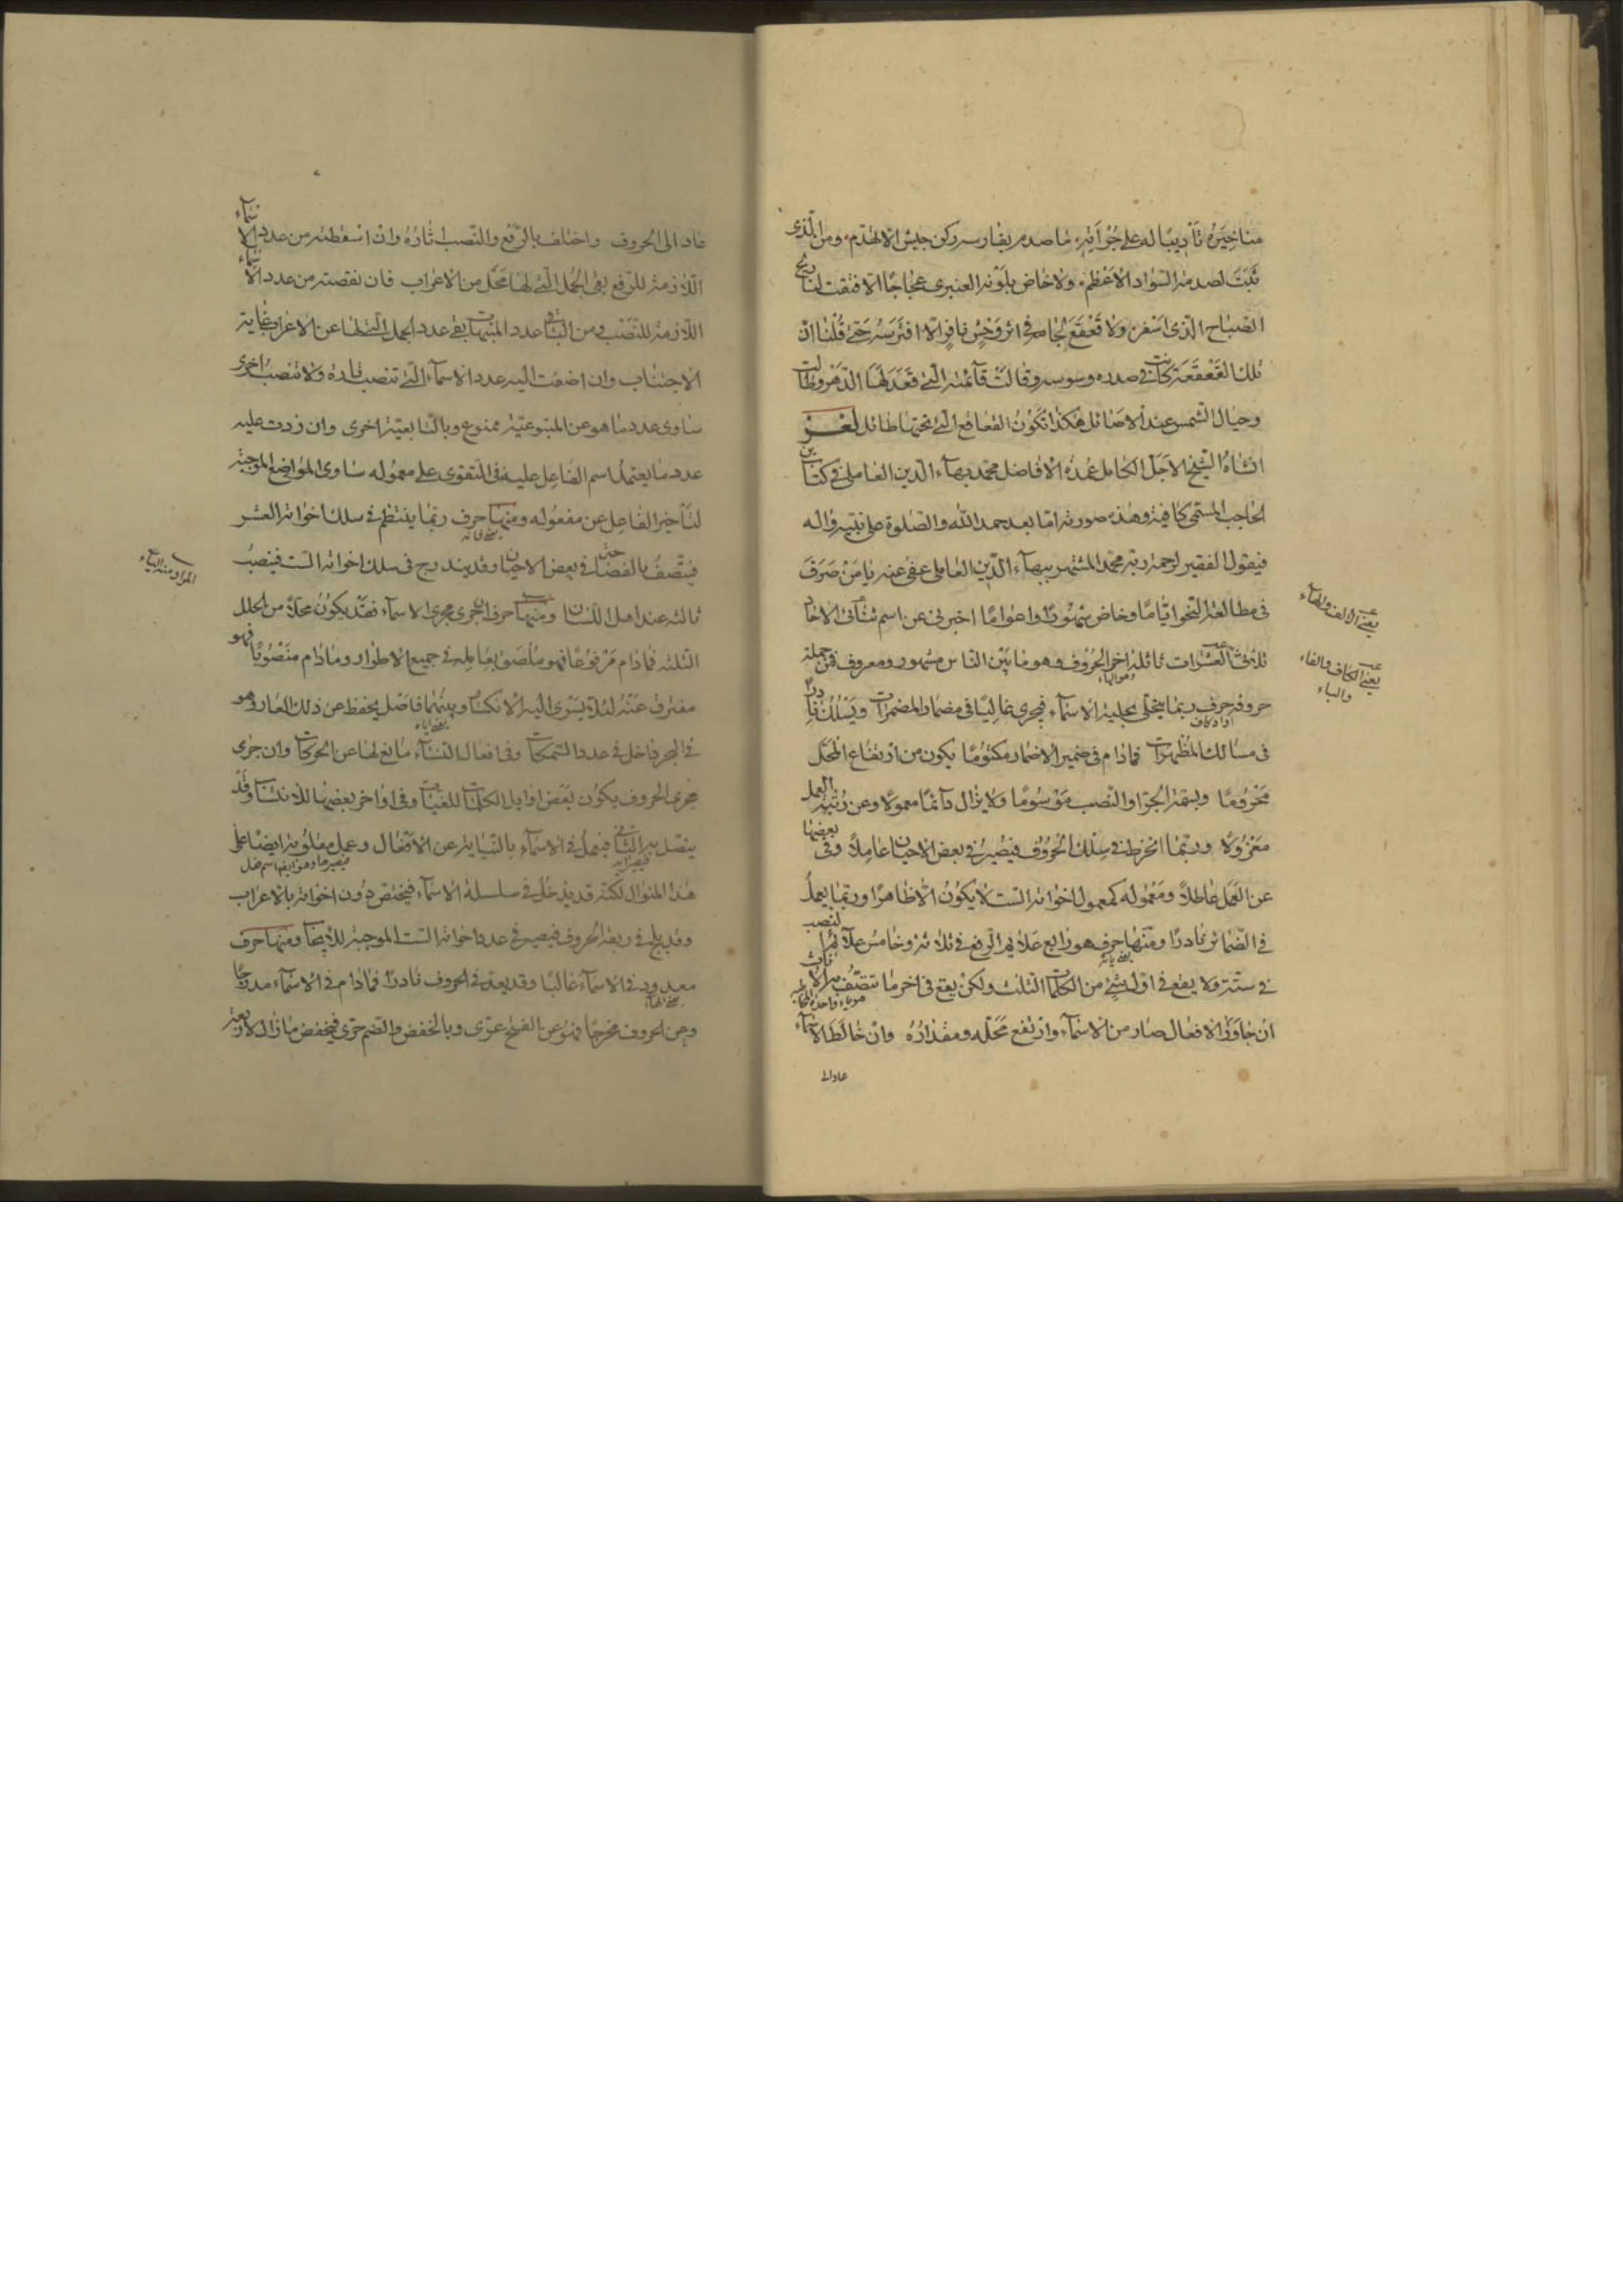 مناخيره تأديبا له على جرآته ما صدم بفارسه ركن جيش الا انهدم ومن الذى
ثبت لصدمة السواد الاعظم ولا خاض بلونه العنبرى عجاجا الا فتقت لنا ريح
الصباح الذى اسفر ولا قعقع لجامه فى اثر وحش نافر الا افترسه حتى قلنا ان
تلك القعقعة كانت فى صدره وسوسه وقالت قآئمته التى قعد لها الدهر وطالت
وحبال الشمس عند الاصائل هكذا تكون القعاقع التى تحتها طائل لغز
انشاه الشيخ الاجل الكامل عمدة الافاضل محمد بهآء الدين العاملى فى كتاب ابن
الحاجب المسمى كافية وهذه صورته اما بعد حمد الله والصلوة على نبيه واله
فيقول الفقير لرحمة ربه محمد المشتهر ببهآء الدين العاملى عفى عنه يا من صرف
فى مطالعة النحو اياما وخاض شهورا واعواما اخبرنى عن اسم ثنآئى الاحاد
ثلاثى العشرات ثالثه اخر الحروف وهو ما بين الناس مشهور ومعروف فمن جملة
حروفه حرف ربما يتحلى بحلية الاسمآء فيجرى غالبا فى مضمار المضمرات ويسلك نادرا
فى مسالك المظهرات فمادام فى ضمير الاضمار مكتوما يكون من ارتفاع المحل
محروما وبسمة الجر او النصب موسوما ولا يزال دآئما معمولا وعن رتبة العمل
معزولا وربما انخرط فى سلك الحروف فيصير فى بعض الاحيان عاملا وفى بعضها
عن العمل عاطلا ومعموله كمعمول اخواته الست لا يكون الا ظاهرا وربما يعمل
فى الضمائر نادرا ومنها حرف هو رابع علائم الرفع فى ثلاثة وخامس علآئم النصب
فى ستة ولا يقع فى اول شئ من الكلمات الثلث ولكن يقع فى اخر ما تتصف به الاناث
ان جاوز الافعال صار من الاسمآء وارتفع محله ومقداره وان خالط الاسمآء
عاد الى
يعنى الالف والهآء
يعنى الكاف والفاء
والياء
عاد الى الحروف واختلف بالرفع والنصب اثاره وان اسقطته من عدد الاسمآء
اللازمة للرفع بقى الجمل التى لها محل من الاعراب فان نقصته من عدد الاسمآء
اللازمة للنصب ومن الباقى عدد المبنيات بقى عدد الجمل التى لها عن الاعراب غاية
الاجتناب وان اضفت اليه عدد الاسمآء التى تنصب تارة ولا تنصب اخرى
ساوى عدد ما هو عن المتبوعية ممنوع وبالتابعية اخرى وان زدت عليه
عدد ما يعتمد اسم الفاعل عليه فى التقوى على معموله ساوى المواضع الموجبة
لتأخير الفاعل عن مفعوله ومنها حرف ربما ينتظم فى سلك اخواته العشر
فيتصف بالفضا حتى فى بعض الاحيان وقد يندرج فى سلك اخواته الست فينصب
ثالثه عند اهل اللسان ومنها حرف ان جرى مجرى الاسمآء فقد يكون محلا من المحلل
الثلثة فمادام مرفوعا فهو ملصوق بعامله فى جميع الاطوار ومادام منصوبا فهو
مفترق عنه لئلا يسرى اليه الانكسار وبينهما فاصل يحفظ عن ذلك العار وهو
فى البحر داخل فى عدد السمكات وفى افعال النسآء مانع لها عن الحركات وان جرى
مجرى الحروف يكون بعض اوايل الكلمات للغيبات وفى اواخر بعضها للانتساب وقد
يتصل به الثانى فيعمل فى الاسمآء بالنيابة عن الافعال وعمل مقلوبه ايضا على
هذا المنوال لكنه قد يدخل فى سلسلة الاسمآء فيختص دون اخواته بالاعراب
وقد يلج فى ربقة الحروف فيصير فى عدد اخواته الست الموجبة للايجاب ومنها حرف
معدود فى الاسمآء غالبا وقد يعد فى الحروف نادرا فمادام فى الاسمآء مدرجا
وعن الحروف مخرجا فهو عن الفتح عرى وبالخفض والضم حرى فيخفض مازال لاربعة
المراد منه الياء